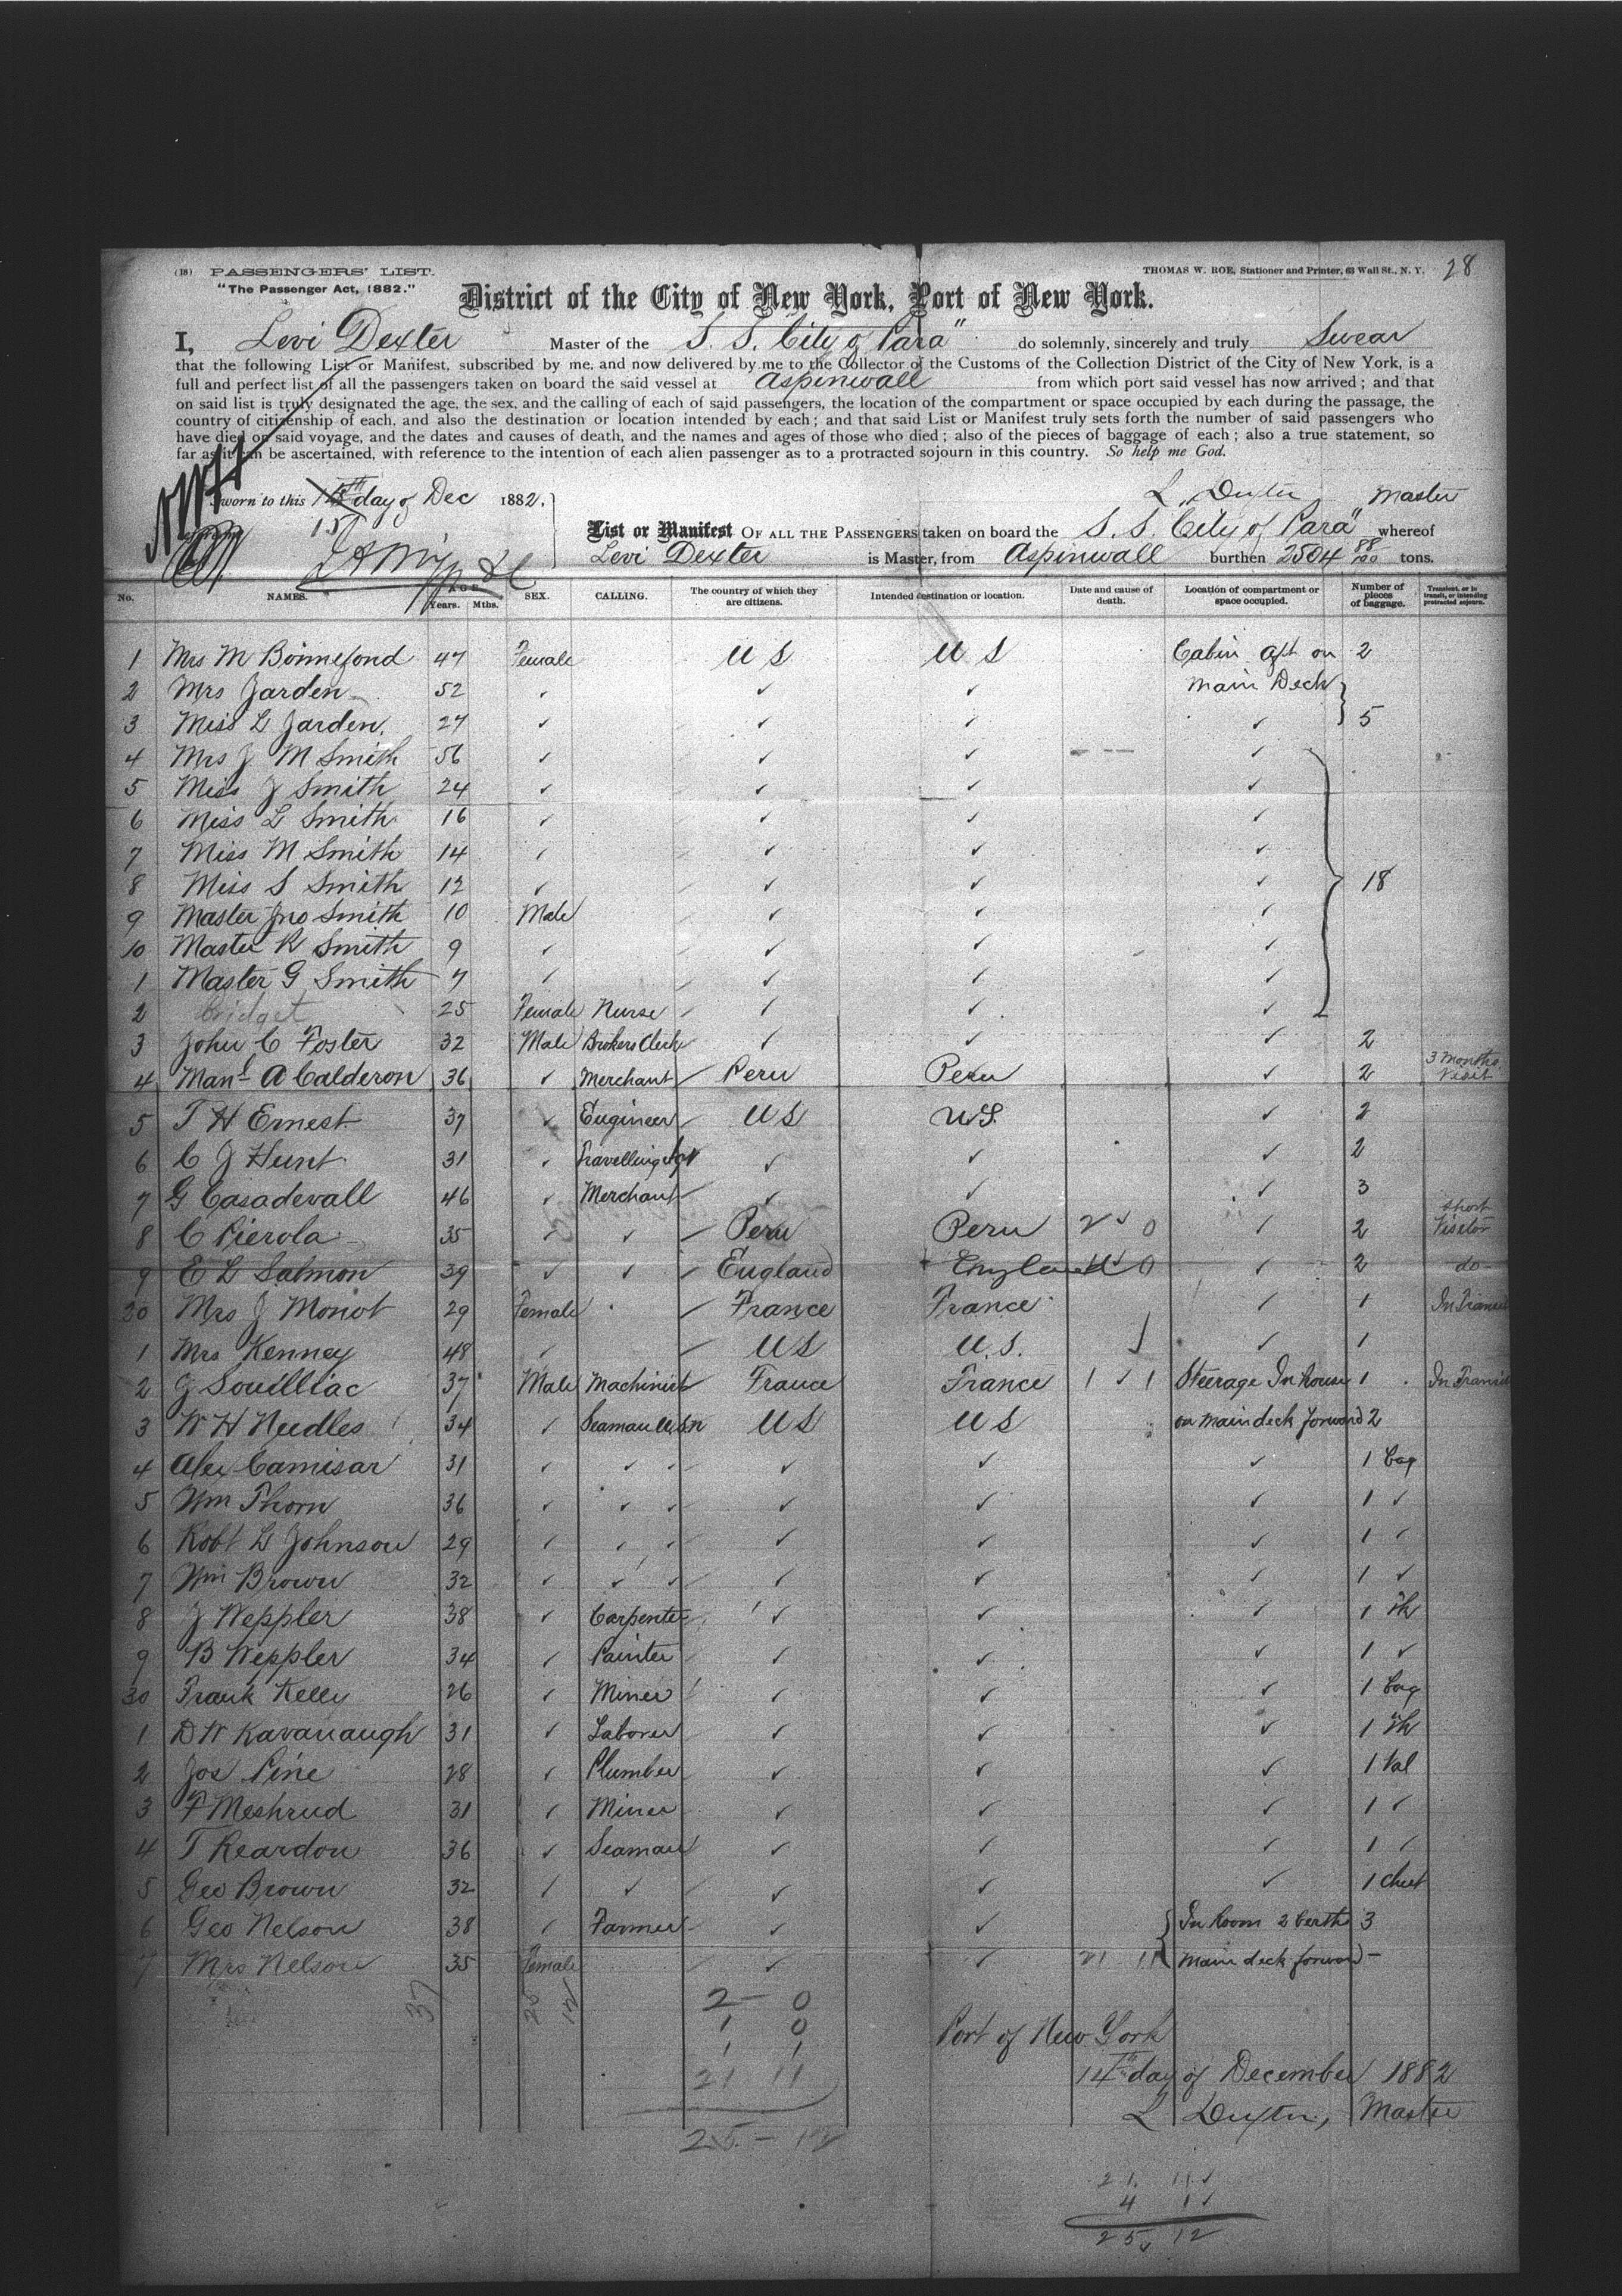 (18) PASSENGERS' LIST.
"The Passenger Act, 1882."
THOMAS W. ROE, Stationer and Printer, 63 Wall St., N. Y.
28
District of the City of New York, Port of New York.
I, Levi Dexter Master of the S. S. "City of Para" do solemnly, sincerely and truly Swear
that the following List or Manifest, subscribed by me, and now delivered by me to the Collector of the Customs of the Collection District of the City of New York, is a
full and perfect list of all the passengers taken on board the said vessel at Aspinwall from which port said vessel has now arrived; and that
on said list is truly designated the age, the sex, and the calling of each of said passengers, the location of the compartment or space occupied by each during the passage, the
country of citizenship of each, and also the destination or location intended by each; and that said List or Manifest truly sets forth the number of said passengers who
have died on said voyage, and the dates and causes of death, and the names and ages of those who died; also of the pieces of baggage of each; also a true statement, so
far as it can be ascertained, with reference to the intention of each alien passenger as to a protracted sojourn in this country. So help me God.
Sworn to this 15 day of Dec 1882.
L. Dexter Master
List or Manifest OF ALL THE PASSENGERS taken on board the S. S. "City of Para" whereof
Levi Dexter is Master, from Aspinwall burthen 2504 tons.
No. NAMES. AGE Years. Mths. SEX. CALLING. The country of which they are citizens. Intended destination or location. Date and cause of death. Location of compartment or space occupied. Number of pieces of baggage. Transient, or in transit, or intending protracted sojourn.
1 Mrs M Bonnefond 47 Female U S U S Cabin aft on 2
2 Mrs Jarden 52 ✓ ✓ ✓ Main Deck
3 Miss L Jarden 27 ✓ ✓ ✓ ✓ 5
4 Mrs J M Smith 56 ✓ ✓ ✓ ✓
5 Miss J Smith 24 ✓ ✓ ✓ ✓
6 Miss L Smith 16 ✓ ✓ ✓ ✓
7 Miss M Smith 14 ✓ ✓ ✓ ✓
8 Miss S Smith 12 ✓ ✓ ✓ ✓ 18
9 Master Jno Smith 10 Male ✓ ✓ ✓
10 Master R Smith 9 ✓ ✓ ✓ ✓
1 Master G Smith 7 ✓ ✓ ✓ ✓
2 Bridget 25 Female Nurse ✓ ✓ ✓
3 John C Foster 32 Male Brokers Clerk ✓ ✓ ✓ 2
4 Manl A Calderon 36 ✓ Merchant Peru Peru ✓ 2 3 Months Visit
5 T H Ernest 37 ✓ Engineer U S U S. ✓ 2
6 C J Hunt 31 ✓ Travelling Agt ✓ ✓ ✓ 2
7 G Casadevall 46 ✓ Merchant ✓ ✓ ✓ 3
8 C Pierola 35 ✓ ✓ Peru Peru 2 ✓ 0 ✓ 2 Short Visitor
9 E L Salmon 39 ✓ ✓ England England 1 ✓ 0 ✓ 2 do
20 Mrs J Monot 29 Female France France ✓ 1 In Transit
1 Mrs Kenney 48 ✓ U S U. S. ✓ 1
2 J Souilliac 37 Male Machinist France France 1 ✓ 1 Steerage In house 1 In Transit
3 W H Needles 34 ✓ Seaman U.S.N U S U S on main deck forward 2
4 Alex Camisar 31 ✓ ✓ ✓ ✓ ✓ ✓ 1 bag
5 Wm Thorn 36 ✓ ✓ ✓ ✓ ✓ ✓ 1 ✓
6 Robt L Johnson 29 ✓ ✓ ✓ ✓ ✓ ✓ 1 ✓
7 Wm Brown 32 ✓ ✓ ✓ ✓ ✓ ✓ 1 ✓
8 J Weppler 38 ✓ Carpenter ✓ ✓ ✓ 1
9 B Weppler 34 ✓ Painter ✓ ✓ ✓ 1 ✓
30 Frank Kelly 26 ✓ Miner ✓ ✓ ✓ 1 bag
1 D W Kavanaugh 31 ✓ Laborer ✓ ✓ ✓ 1
2 Jos Pine 28 ✓ Plumber ✓ ✓ ✓ 1 Val
3 F Meshrud 31 ✓ Miner ✓ ✓ ✓ 1 ✓
4 T Reardon 36 ✓ Seaman ✓ ✓ ✓ 1 ✓
5 Geo Brown 32 ✓ ✓ ✓ ✓ ✓ 1 Chest
6 Geo Nelson 38 ✓ Farmer ✓ ✓ In Room 2 berths 3
7 Mrs Nelson 35 Female ✓ ✓ 21 11 Main deck forward –
37 25 12
2 – 0
1 0
1 1
21 11
25 – 12
Port of New York
14th day of December 1882
L Dexter, Master
21. 11 ✓
4 1 ✓
25 ✓ 12